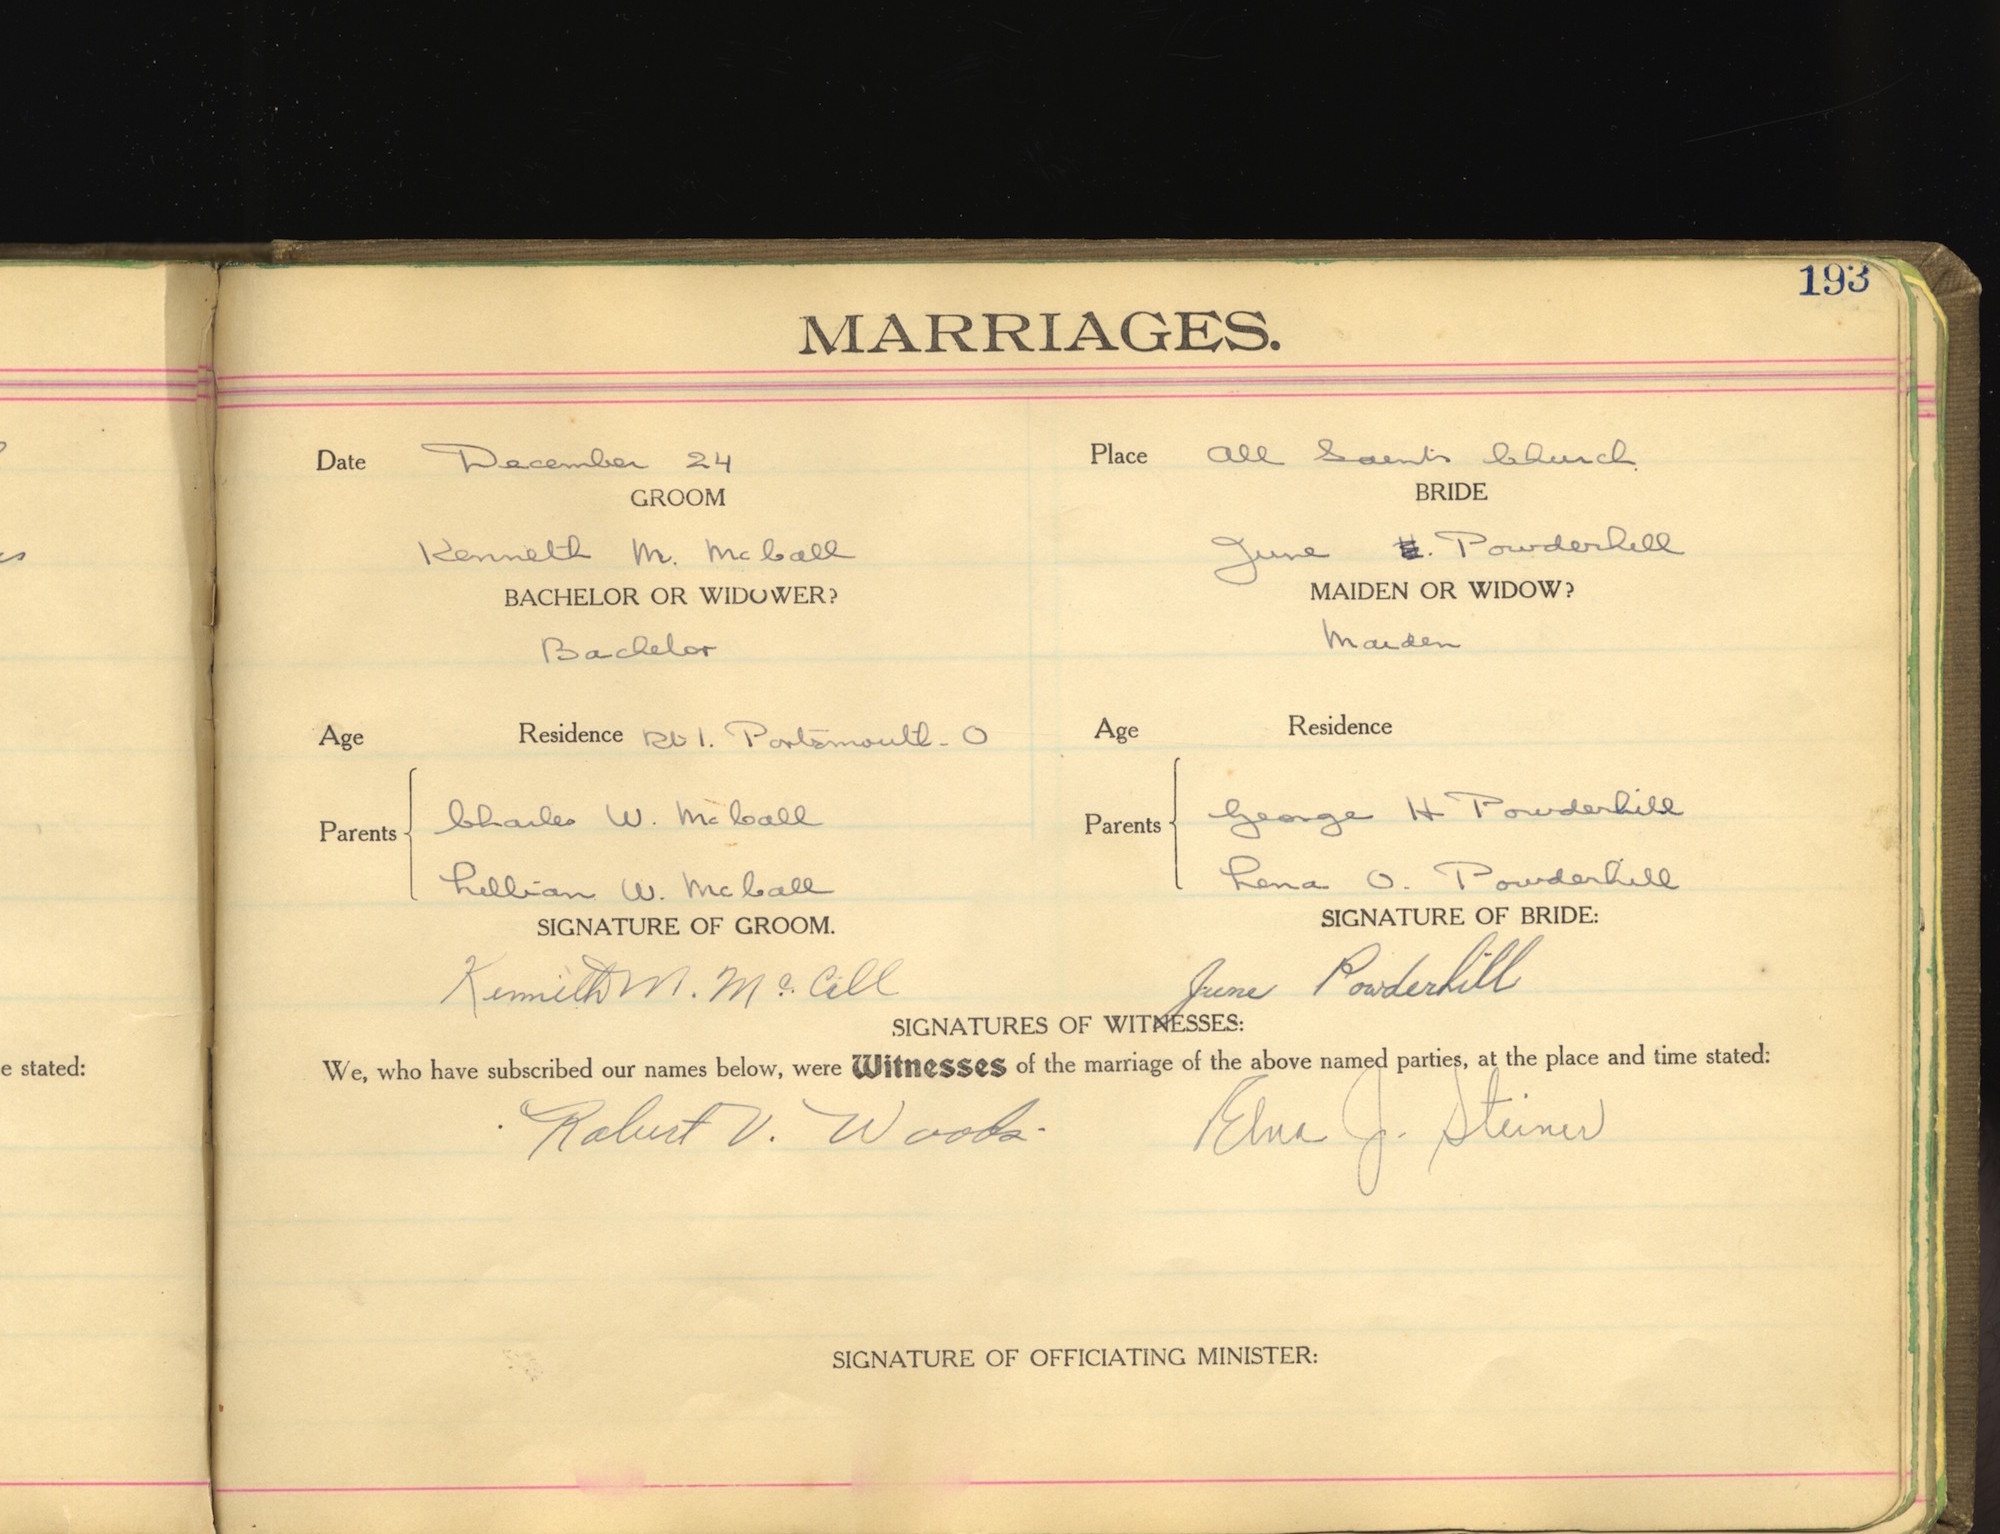 193
MARRIAGES.
Date December 24 Place All Saints Church
GROOM BRIDE
Kenneth M. McCall June Powderhill
BACHELOR OR WIDOWER? MAIDEN OR WIDOW?
Bachelor Maiden
Age Residence Rt 1. Portsmouth - O Age Residence
Parents Charles W. McCall Parents George H Powderhill
Lillian W. McCall Lena O. Powderhill
SIGNATURE OF GROOM. SIGNATURE OF BRIDE:
Kenneth M. McCall June Powderhill
SIGNATURES OF WITNESSES:
e stated: We, who have subscribed our names below, were Witnesses of the marriage of the above named parties, at the place and time stated:
Robert V. Woods Edna J. Steiner
SIGNATURE OF OFFICIATING MINISTER: